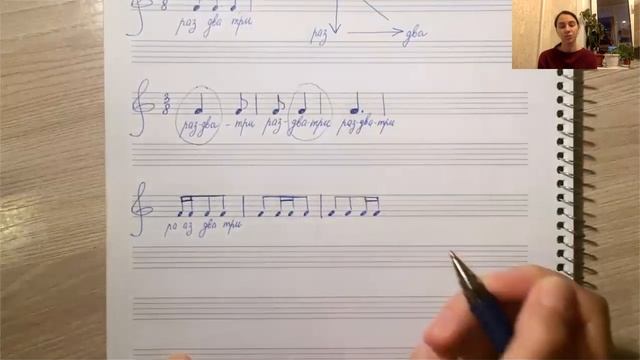 8
раз два три
раз два
3
8
раз-два - три раз- два-три раз-два-три
ра аз два три